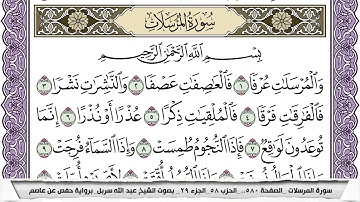 سورة المرسلات
بِسْمِ اللَّهِ الرَّحْمَٰنِ الرَّحِيمِ
وَالْمُرْسَلَاتِ عُرْفًا ١ فَالْعَاصِفَاتِ عَصْفًا ٢ وَالنَّاشِرَاتِ نَشْرًا ٣
فَالْفَارِقَاتِ فَرْقًا ٤ فَالْمُلْقِيَاتِ ذِكْرًا ٥ عُذْرًا أَوْ نُذْرًا ٦ إِنَّمَا
تُوعَدُونَ لَوَاقِعٌ ٧ فَإِذَا النُّجُومُ طُمِسَتْ ٨ وَإِذَا السَّمَاءُ فُرِجَتْ ٩
سورة المرسلات _الصفحة ٥٨٠_ الحزب ٥٨_الجزء ٢٩_ بصوت الشيخ عبد الله سربل _برواية حفص عن عاصم